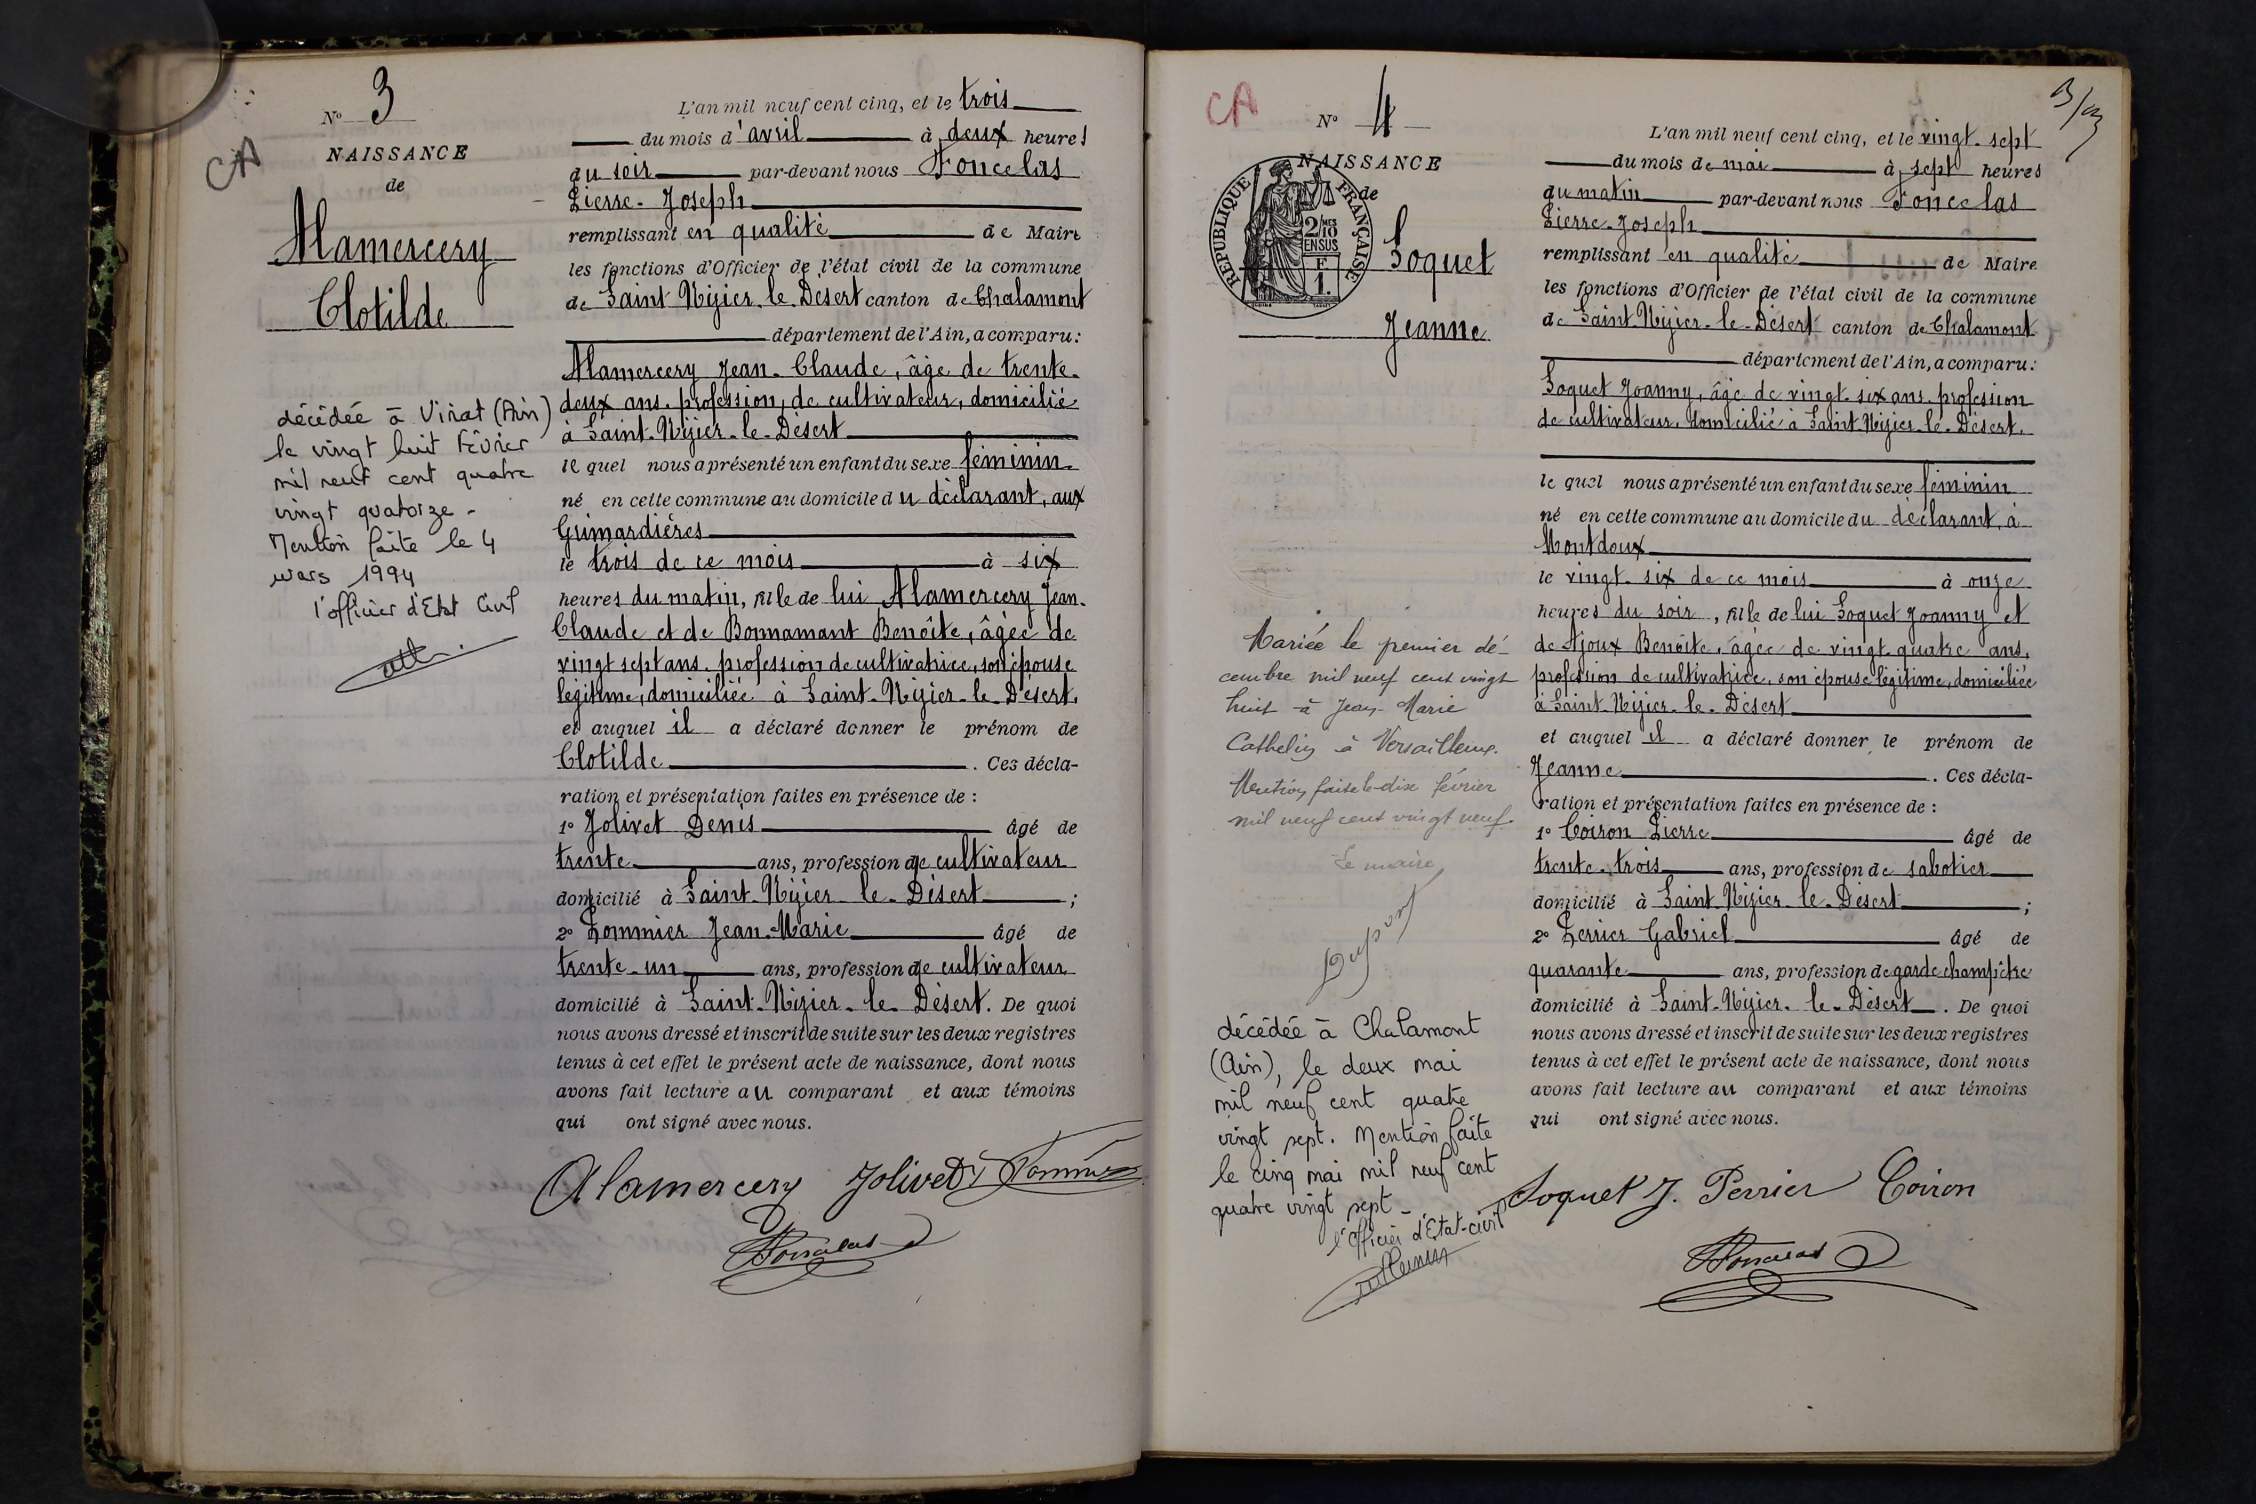 N° 3
NAISSANCE
de
Alamercery
Clotilde
CA
décédée à Viriat (Ain)
le vingt huit Février
mil neuf cent quatre
vingt quatorze -
Mention faite le 4
mars 1994
l'officier d'Etat Civil
L'an mil neuf cent cinq, et le trois
du mois d'avril à deux heures
du soir par-devant nous Foncelas
Pierre-Joseph
remplissant en qualité de Maire
les fonctions d'Officier de l'état civil de la commune
de Saint-Nizier-le-Désert canton de Chalamont
département de l'Ain, a comparu:
Alamercery Jean-Claude, âgé de trente-
deux ans, profession de cultivateur, domicilié
à Saint-Nizier-le-Désert
le quel nous a présenté un enfant du sexe féminin
né en cette commune au domicile du déclarant, aux
Grimardières
le trois de ce mois à six
heures du matin, fille de lui Alamercery Jean-
Claude et de Bonnamant Benoîte, âgée de
vingt sept ans, profession de cultivatrice, son épouse
légitime, domiciliée à Saint-Nizier-le-Désert,
et auquel il a déclaré donner le prénom de
Clotilde. Ces décla-
ration et présentation faites en présence de :
1° Jolivet Denis âgé de
trente ans, profession de cultivateur
domicilié à Saint-Nizier-le-Désert ;
2° Pommier Jean-Marie âgé de
trente-un ans, profession de cultivateur
domicilié à Saint-Nizier-le-Désert. De quoi
nous avons dressé et inscrit de suite sur les deux registres
tenus à cet effet le présent acte de naissance, dont nous
avons fait lecture au comparant et aux témoins
qui ont signé avec nous.
Alamercery Jolivet D Pommier
Foncelas
CA
N° 4
NAISSANCE
de
REPUBLIQUE FRANÇAISE
2/10
EN SUS
F
1.
Soquet
Jeanne
Mariée le premier dé-
cembre mil neuf cent vingt
huit à Jean-Marie
Cathelin à Versailleux.
Mention faite le dix février
mil neuf cent vingt neuf.
Le maire,
Dupont
décédée à Chalamont
(Ain), le deux mai
mil neuf cent quatre
vingt sept. Mention faite
le cinq mai mil neuf cent
quatre vingt sept -
l'officier d'Etat-civil
L'an mil neuf cent cinq, et le vingt-sept
du mois de mai à sept heures
du matin par-devant nous Foncelas
Pierre-Joseph
remplissant en qualité de Maire
les fonctions d'Officier de l'état civil de la commune
de Saint-Nizier-le-Désert canton de Chalamont
département de l'Ain, a comparu:
Soquet Joanny, âgé de vingt-six ans, profession
de cultivateur, domicilié à Saint-Nizier-le-Désert,
le quel nous a présenté un enfant du sexe féminin
né en cette commune au domicile du déclarant, à
Montdoux
le vingt-six de ce mois à onze
heures du soir, fille de lui Soquet Joanny et
de Ajoux Benoîte, âgée de vingt-quatre ans,
profession de cultivatrice, son épouse légitime, domiciliée
à Saint-Nizier-le-Désert
et auquel il a déclaré donner le prénom de
Jeanne. Ces décla-
ration et présentation faites en présence de :
1° Coiron Pierre âgé de
trente-trois ans, profession de sabotier
domicilié à Saint-Nizier-le-Désert ;
2° Perrier Gabriel âgé de
quarante ans, profession de garde champêtre
domicilié à Saint-Nizier-le-Désert. De quoi
nous avons dressé et inscrit de suite sur les deux registres
tenus à cet effet le présent acte de naissance, dont nous
avons fait lecture au comparant et aux témoins
qui ont signé avec nous.
Soquet J. Perrier Coiron
Foncelas